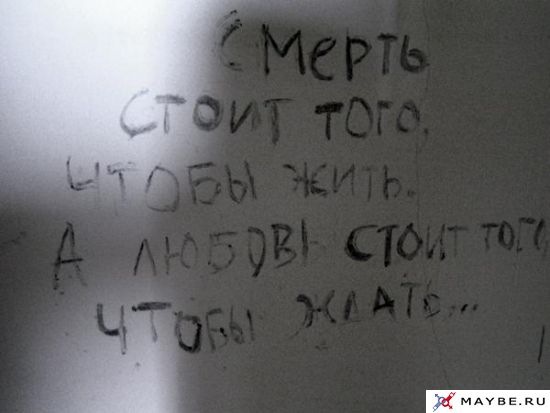 Смерть
стоит того,
чтобы жить.
А любовь стоит того
чтобы ждать...
MAYBE.RU